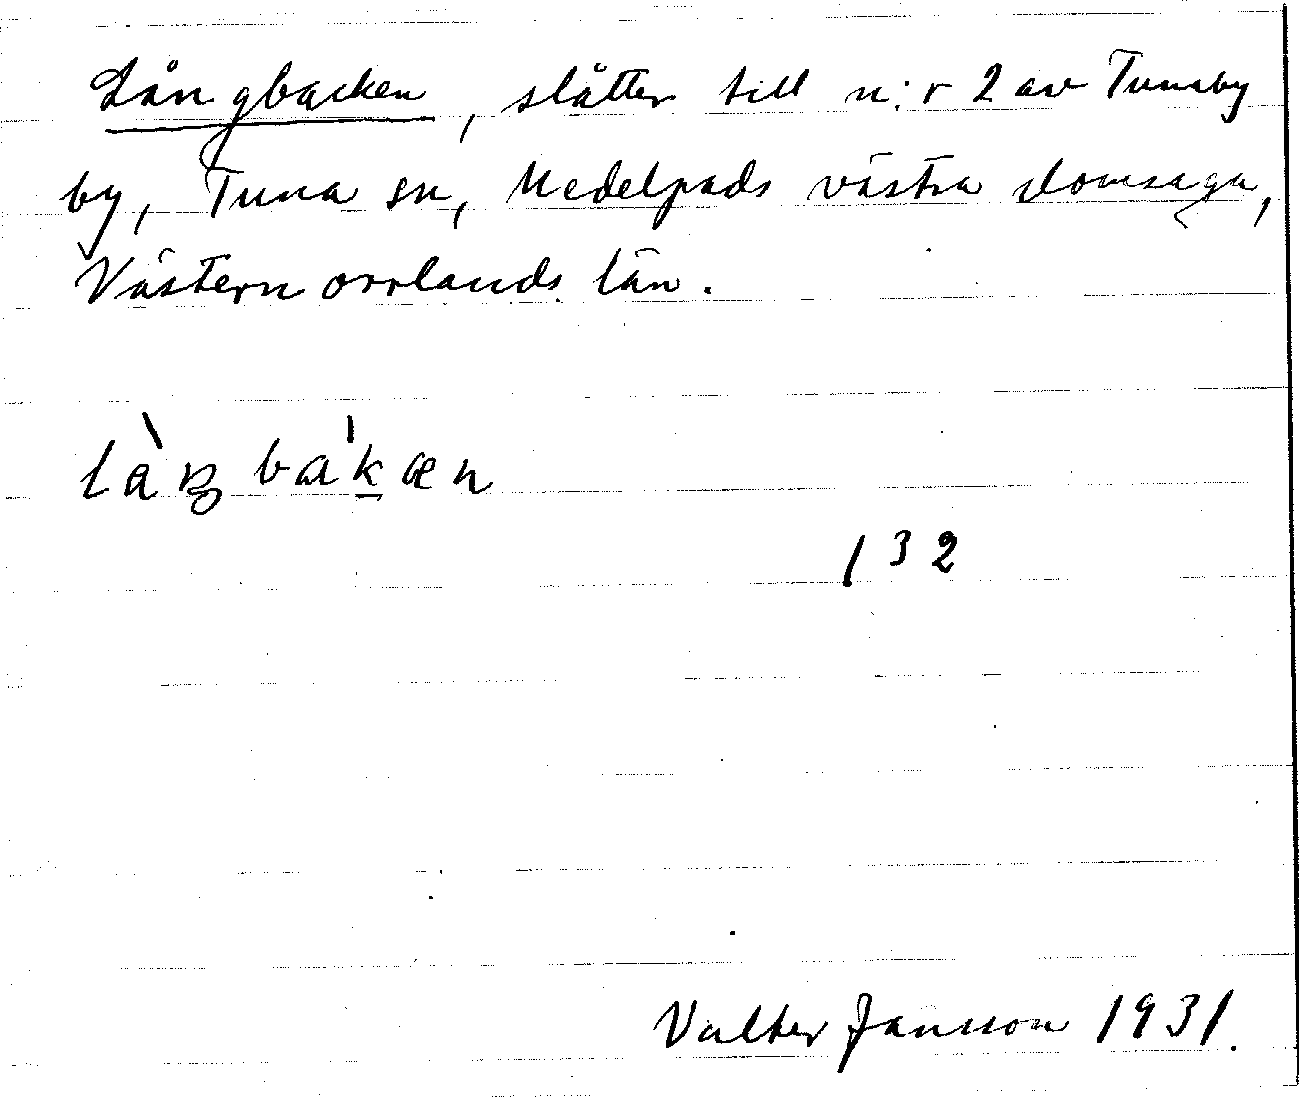 Långbacken, slåtter till n:r 2 av Tunaby
by, Tuna sn, Medelpads västra domsaga,
Västernorrlands län.
làŋbak̲æn
132
Valter Jansson 1931.